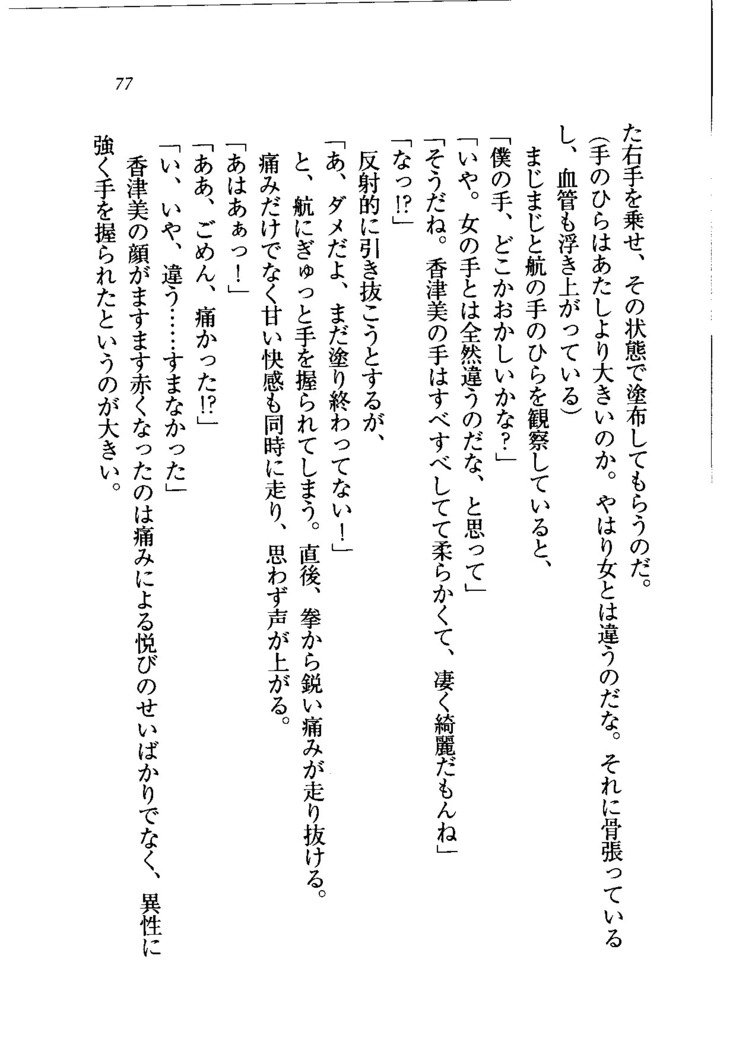 77
た右手を乗せ、その状態で塗布してもらうのだ。
(手のひらはあたしより大きいのか。やはり女とは違うのだな。それに骨張っている
し、血管も浮き上がっている)
まじまじと航の手のひらを観察していると、
「僕の手、どこかおかしいかな?」
「いや。女の手とは全然違うのだな、と思って」
「そうだね。香津美の手はすべすべしてて柔らかくて、凄く綺麗だもんね」
「なっ!?」
反射的に引き抜こうとするが、
「あ、ダメだよ、まだ塗り終わってない!」
と、航にぎゅっと手を握られてしまう。直後、拳から鋭い痛みが走り抜ける。
痛みだけでなく甘い快感も同時に走り、思わず声が上がる。
「あはあぁっ!」
「ああ、ごめん、痛かった!?」
「い、いや、違う……すまなかった」
香津美の顔がますます赤くなったのは痛みによる悦びのせいばかりでなく、異性に
強く手を握られたというのが大きい。